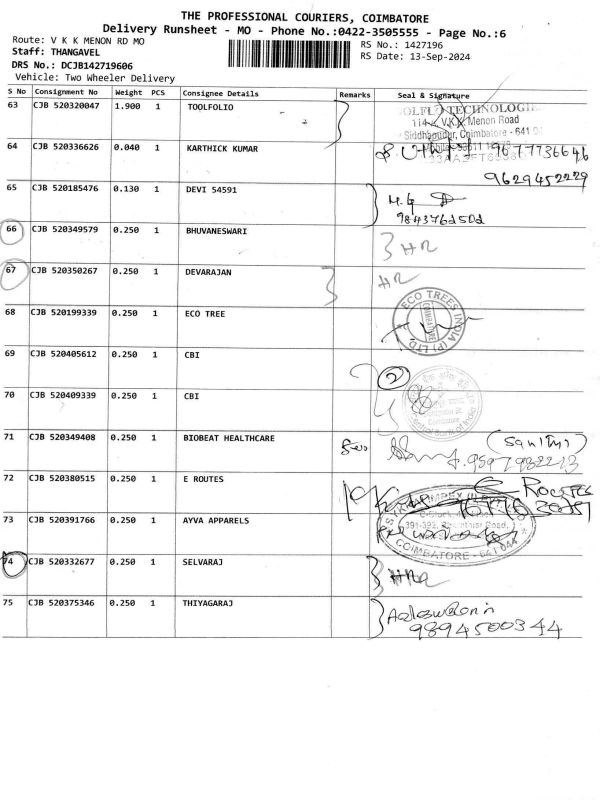 THE PROFESSIONAL COURIERS, COIMBATORE
Delivery Runsheet - MO - Phone No.:0422-3505555 - Page No.:6
Route: V K K MENON RD MO
Staff: THANGAVEL
DRS No.: DCJB142719606
Vehicle: Two Wheeler Delivery
RS No.: 1427196
RS Date: 13-Sep-2024
S No Consignment No Weight PCS Consignee Details Remarks Seal & Signature
63 CJB 520320047 1.900 1 TOOLFOLIO
TECHNOLOGI
114 V.K.K. Menon Road
Siddhapudur, Coimbatore - 641
64 CJB 520336626 0.040 1 KARTHICK KUMAR 9677736646
9629452229
65 CJB 520185476 0.130 1 DEVI 54591
66 CJB 520349579 0.250 1 BHUVANESWARI
67 CJB 520350267 0.250 1 DEVARAJAN
68 CJB 520199339 0.250 1 ECO TREE
ECO TREES INDIA (P) LTD.
COIMBATORE
69 CJB 520405612 0.250 1 CBI 2
70 CJB 520409339 0.250 1 CBI
71 CJB 520349408 0.250 1 BIOBEAT HEALTHCARE
72 CJB 520380515 0.250 1 E ROUTES E ROUTES
73 CJB 520391766 0.250 1 AYVA APPARELS
COIMBATORE - 641 044
74 CJB 520332677 0.250 1 SELVARAJ
75 CJB 520375346 0.250 1 THIYAGARAJ
9894500344